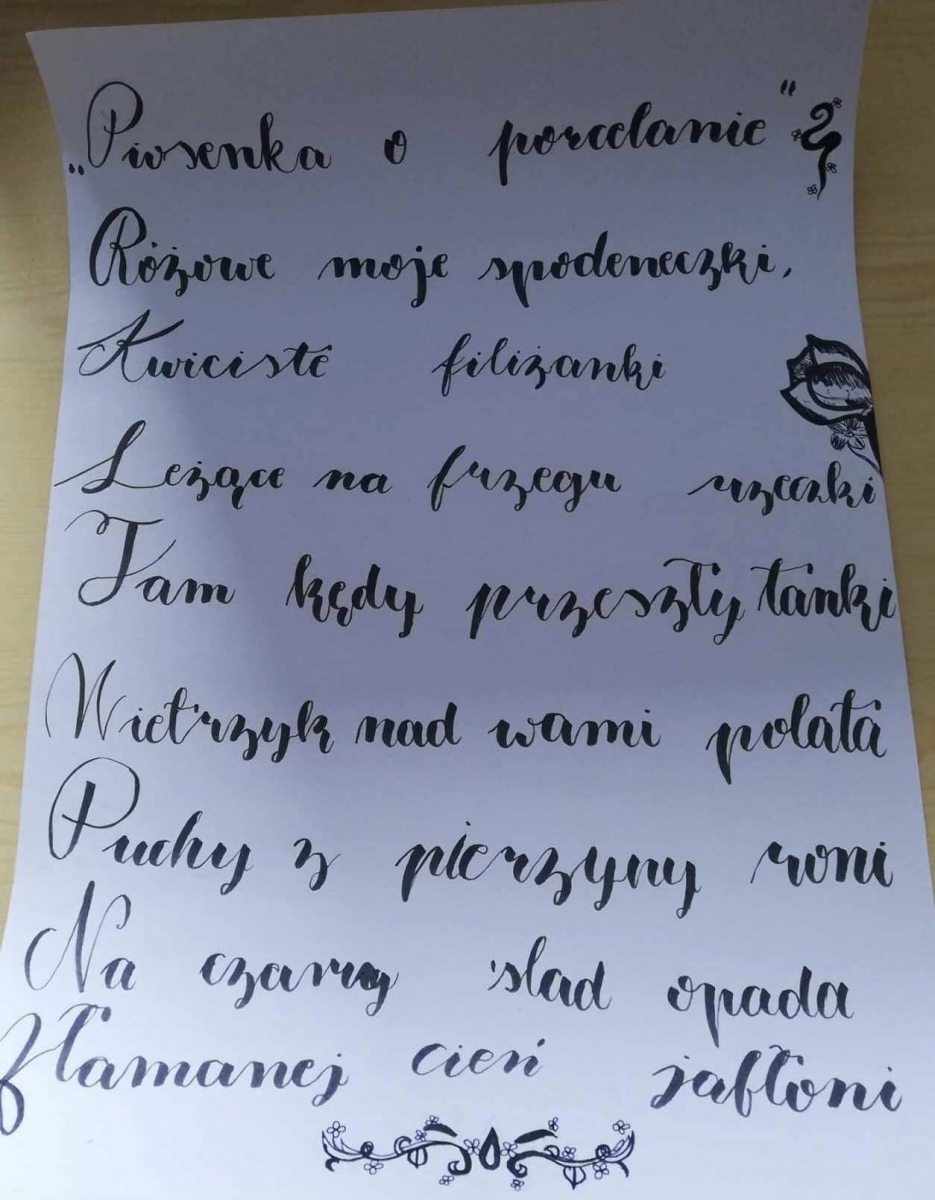 „Piosenka o porcelanie"
Różowe moje spodeneczki,
Kwieciste filiżanki
Leżące na brzegu rzeczki
Tam kędy przeszły tanki
Wietrzyk nad wami polata
Puchy z pierzyny roni
Na czarny ślad opada
Złamanej cień jabłoni